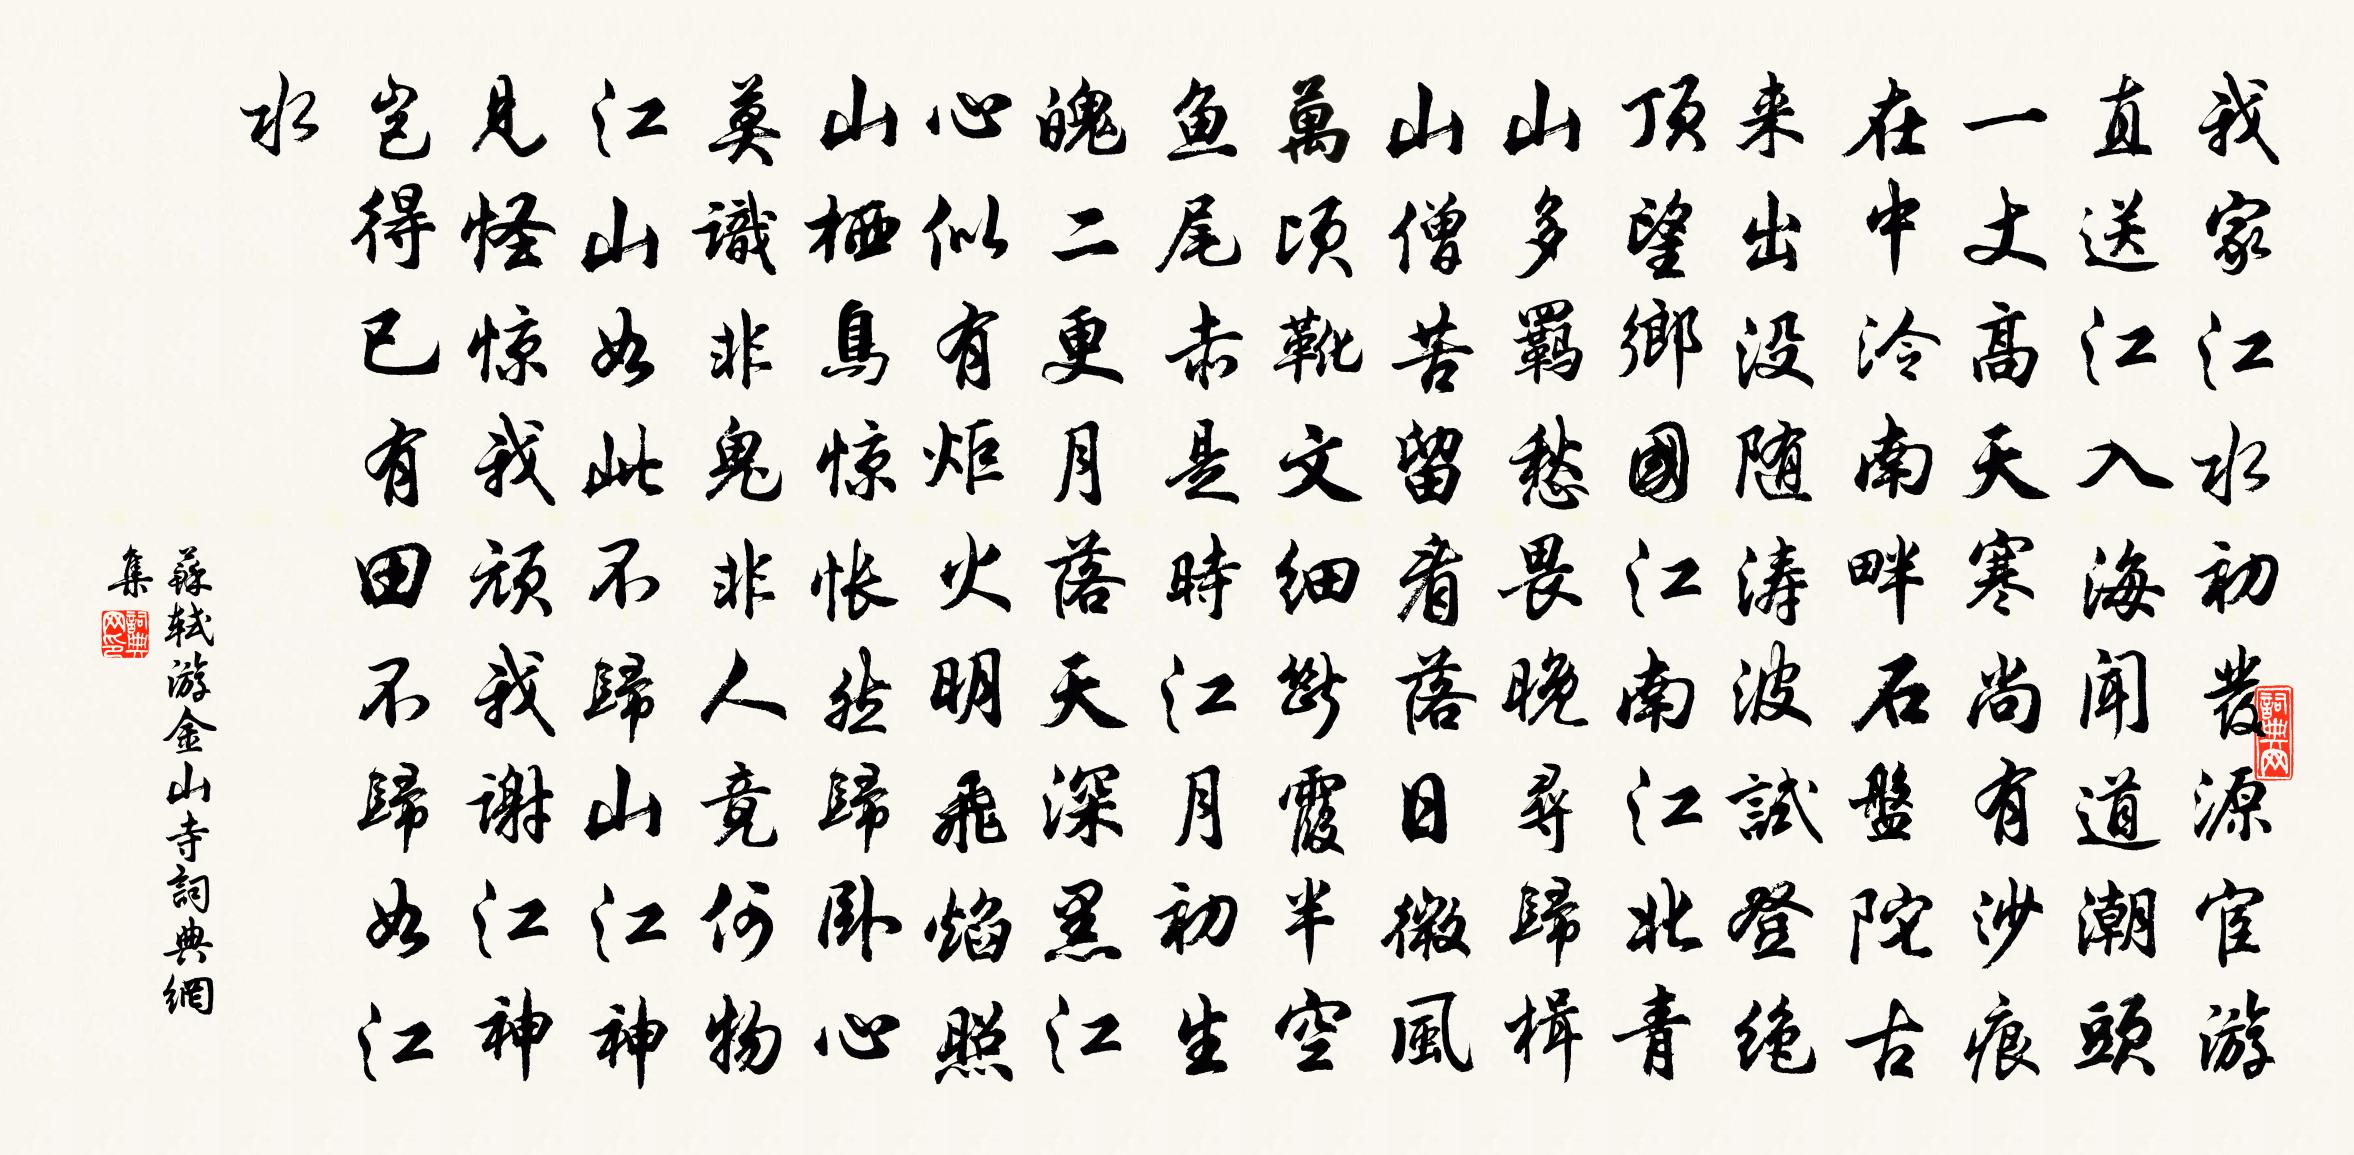 我家江水初發源宦游
直送江入海闻道潮頭
一丈高天寒尚有沙痕
在中泠南畔石盤陀古
来出没随涛波試登绝
頂望鄉國江南江北青
山多羈愁畏晚尋歸楫
山僧苦留看落日微風
萬顷靴文细斷霞半空
鱼尾赤是時江月初生
魄二更月落天深黑江
心似有炬火明飛焰照
山栖鳥惊怅然歸卧心
莫識非鬼非人竟何物
江山如此不歸山江神
見怪惊我顽我謝江神
岂得已有田不歸如江
水
蘇轼游金山寺詞典網
集
詞典網
詞典網印